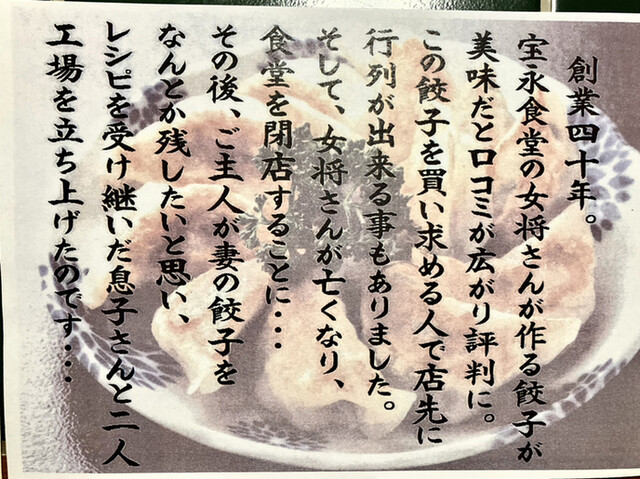 創業四十年。
宝永食堂の女将さんが作る餃子が
美味だと口コミが広がり評判に。
この餃子を買い求める人で店先に
行列が出来る事もありました。
そして、女将さんが亡くなり、
食堂を閉店することに・・・
その後、ご主人が妻の餃子を
なんとか残したいと思い、
レシピを受け継いだ息子さんと二人
工場を立ち上げたのです・・・